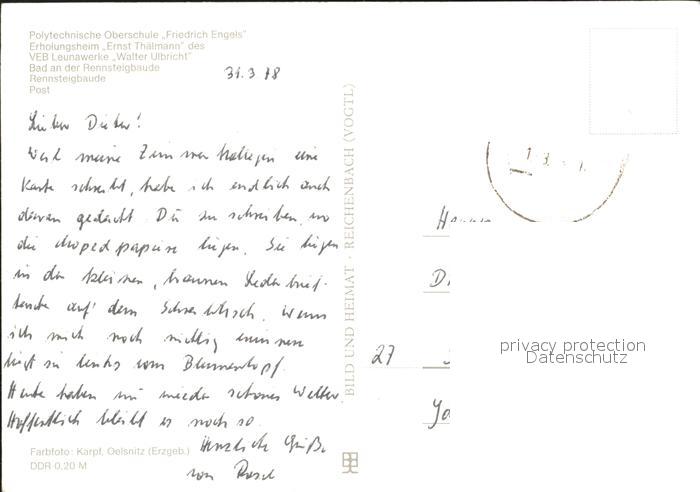 Polytechnische Oberschule „Friedrich Engels"
Erholungsheim „Ernst Thälmann" des
VEB Leunawerke „Walter Ulbricht"
Bad an der Rennsteigbaude
Rennsteigbaude
Post
31.3.78
Lieber Dieter!
Weil meine Zimmerkollegin eine
Karte schreibt, habe ich endlich auch
daran gedacht Dir zu schreiben, wo
die Mopedpapiere liegen. Sie liegen
in der kleinen, braunen Lederbrief-
tasche auf dem Schreibtisch. Wenn
ich mich noch richtig erinnere
liegt sie links vom Blumentopf.
Heute haben wir wieder schönes Wetter.
Hoffentlich bleibt es noch so.
Herzliche Grüße
von
BILD UND HEIMAT · REICHENBACH (VOGTL)
27
privacy protection
Datenschutz
Farbfoto: Karpf, Oelsnitz (Erzgeb.)
DDR-0,20 M